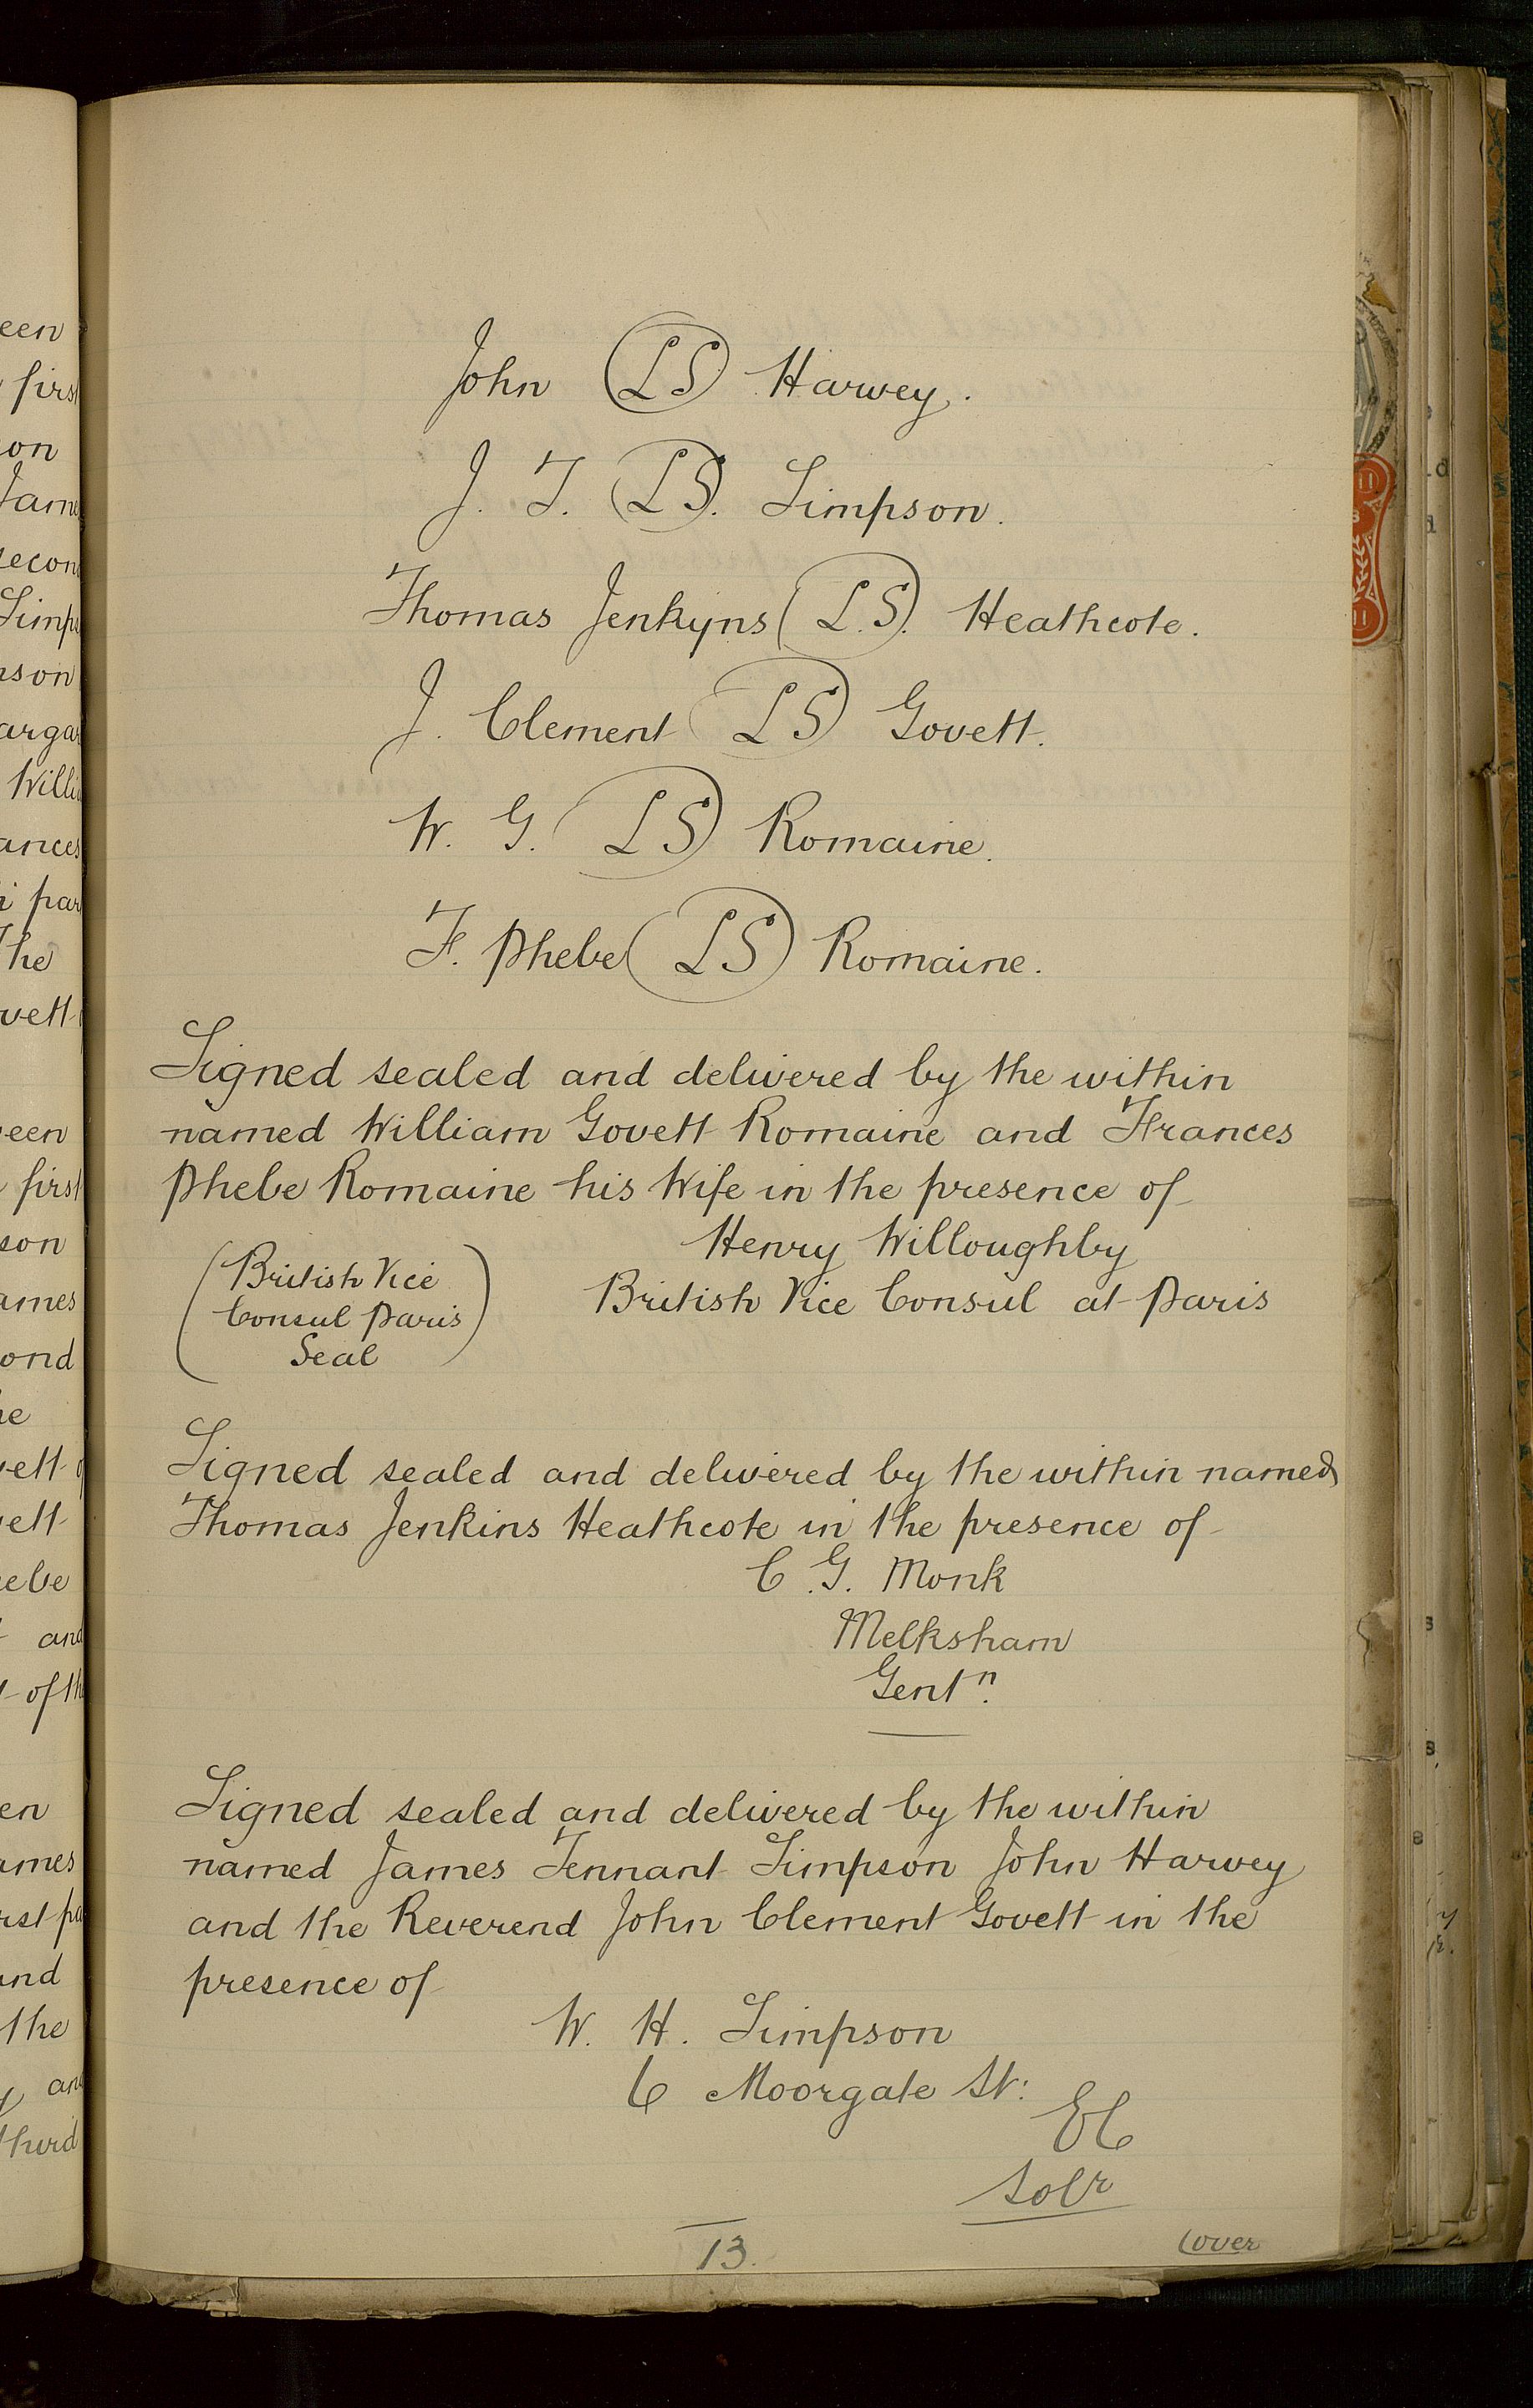 John (LS) Harvey.
J. T. (LS). Simpson.
Thomas Jenkyns (L.S). Heathcote.
J. Clement (LS) Govett.
W. G. (LS) Romaine.
F. Phebe (LS) Romaine.
Signed sealed and delivered by the within
named William Govett Romaine and Frances
Phebe Romaine his Wife in the presence of
Henry Willoughby
British Vice Consul at Paris
(British Vice
Consul Paris
Seal)
Signed sealed and delivered by the within named
Thomas Jenkins Heathcote in the presence of
C. G. Monk
Melksham
Gentn.
Signed sealed and delivered by the within
named James Tennant Simpson John Harvey
and the Reverend John Clement Govett in the
presence of
W. H. Simpson
6 Moorgate St:
EC
Solr
13.
(over